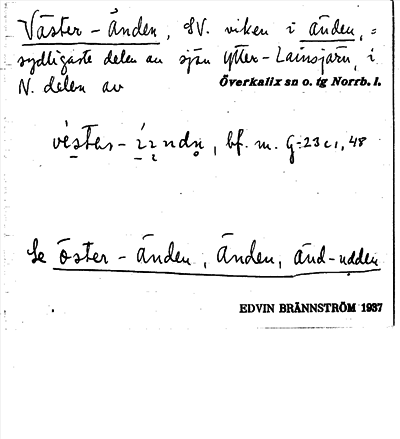 Väster-Änden, SV. viken i änden, =
sydligaste delen av sjön Ytter-Lainsjärv, i
N. delen av Överkalix sn o. tg Norrb. l.
bf. m. G:23 c1, 48
Se Öster-Änden, Änden, Änd-udden
EDVIN BRÄNNSTRÖM 1937